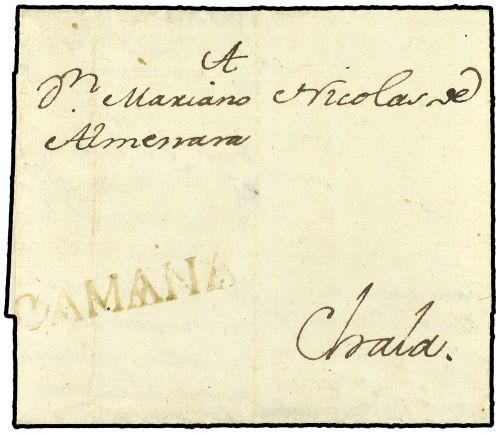 A
Dn. Mariano Nicolas de
Almenara
CAMANA
Chala.